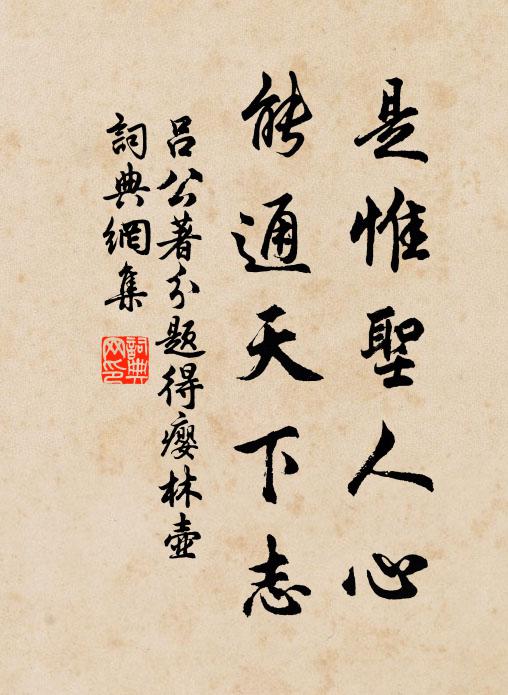 是惟聖人心
能通天下志
呂公著分題得癭林壺
詞典網集
詞典網印